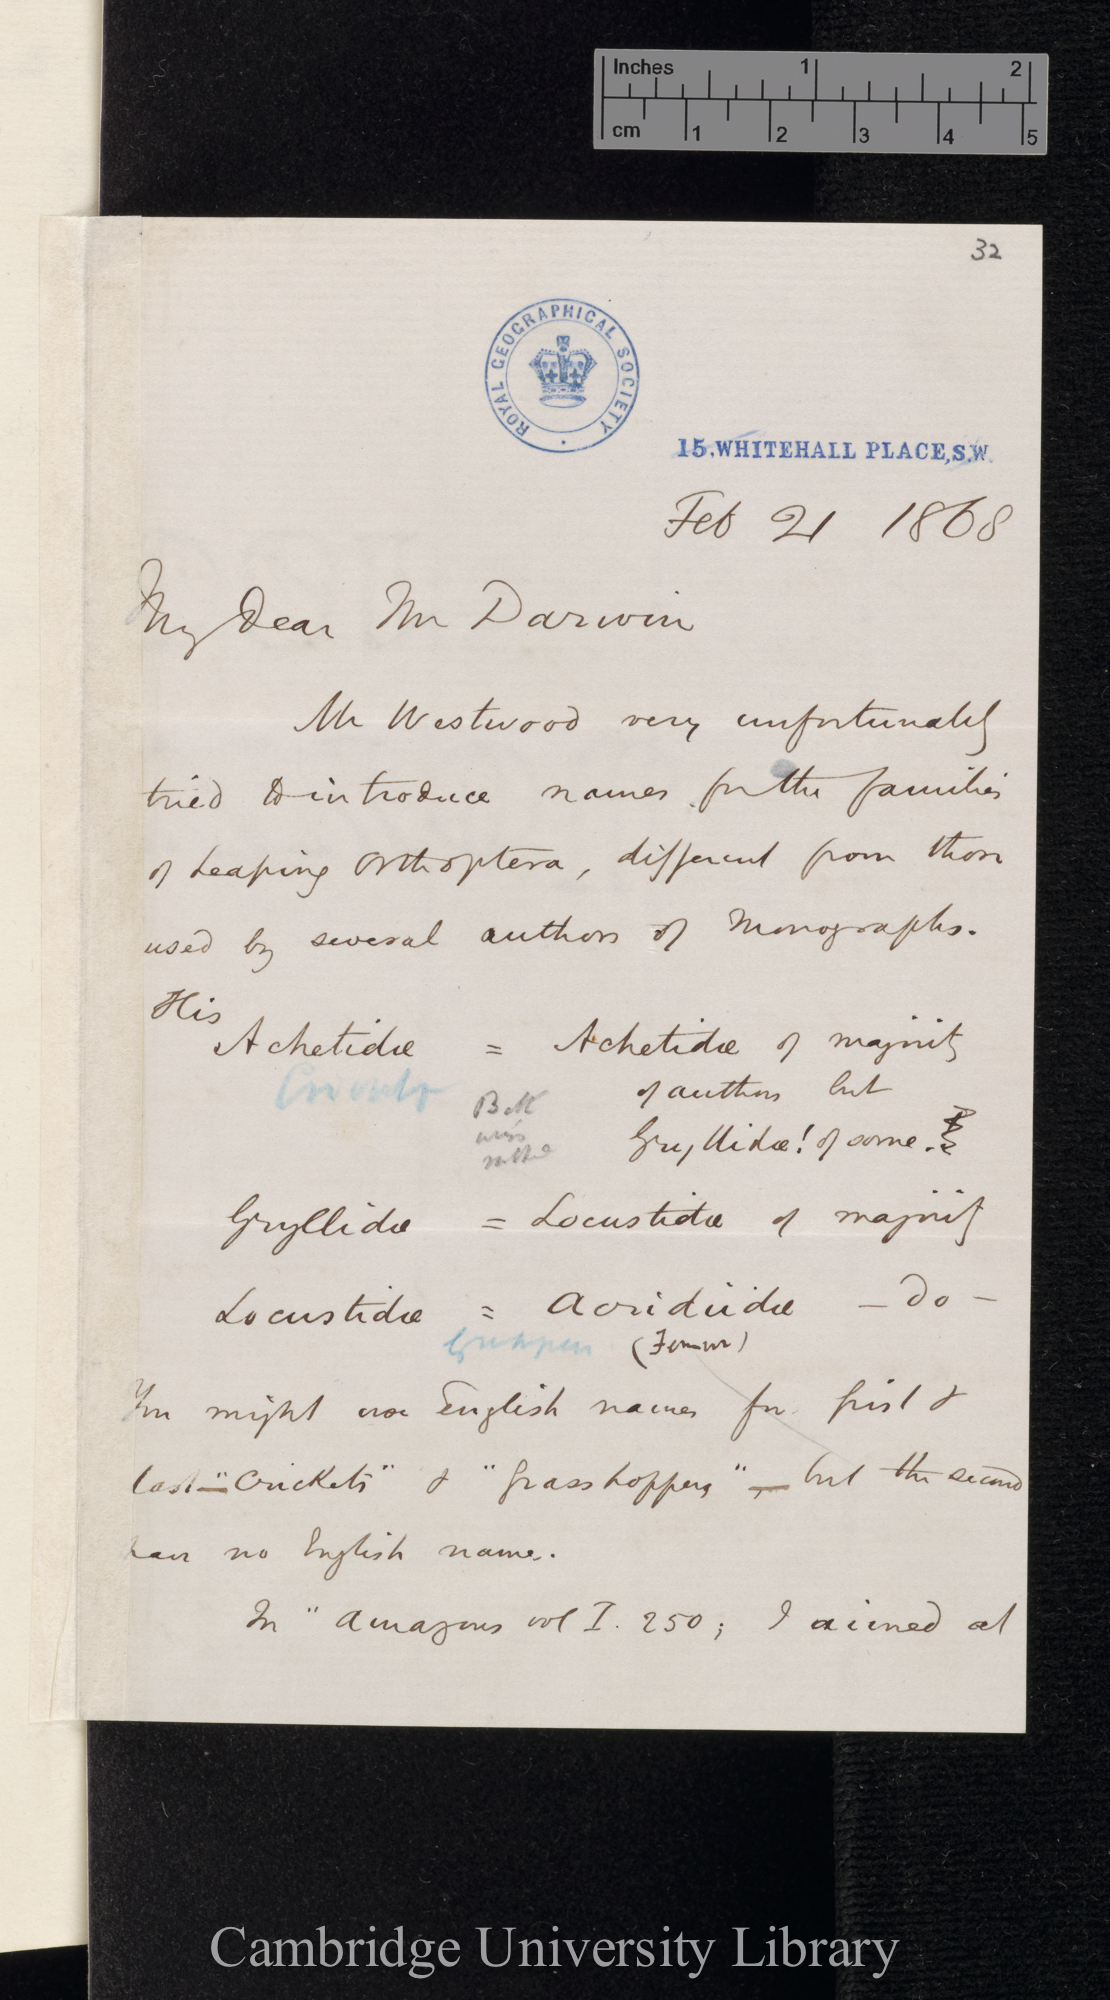 Inches 1 2
cm 1 2 3 4 5
32
ROYAL GEOGRAPHICAL SOCIETY
15, WHITEHALL PLACE, S.W.
Feb 21 1868
My Dear Mr Darwin
Mr Westwood very unfortunately
tried to introduce names for the families
of Leaping Orthoptera, different from those
used by several authors of Monographs.
His
Achetidæ = Achetidæ of majority
Crickets
of authors but
Gryllidæ! of some.
Gryllidæ = Locustidæ of majority
Locustidæ = Acridiidæ — Do —
You might use English names for first &
last — "Crickets" & "Grasshoppers" — but the second
have no English name.
In "Amazons vol I. 250; I aimed at
Cambridge University Library